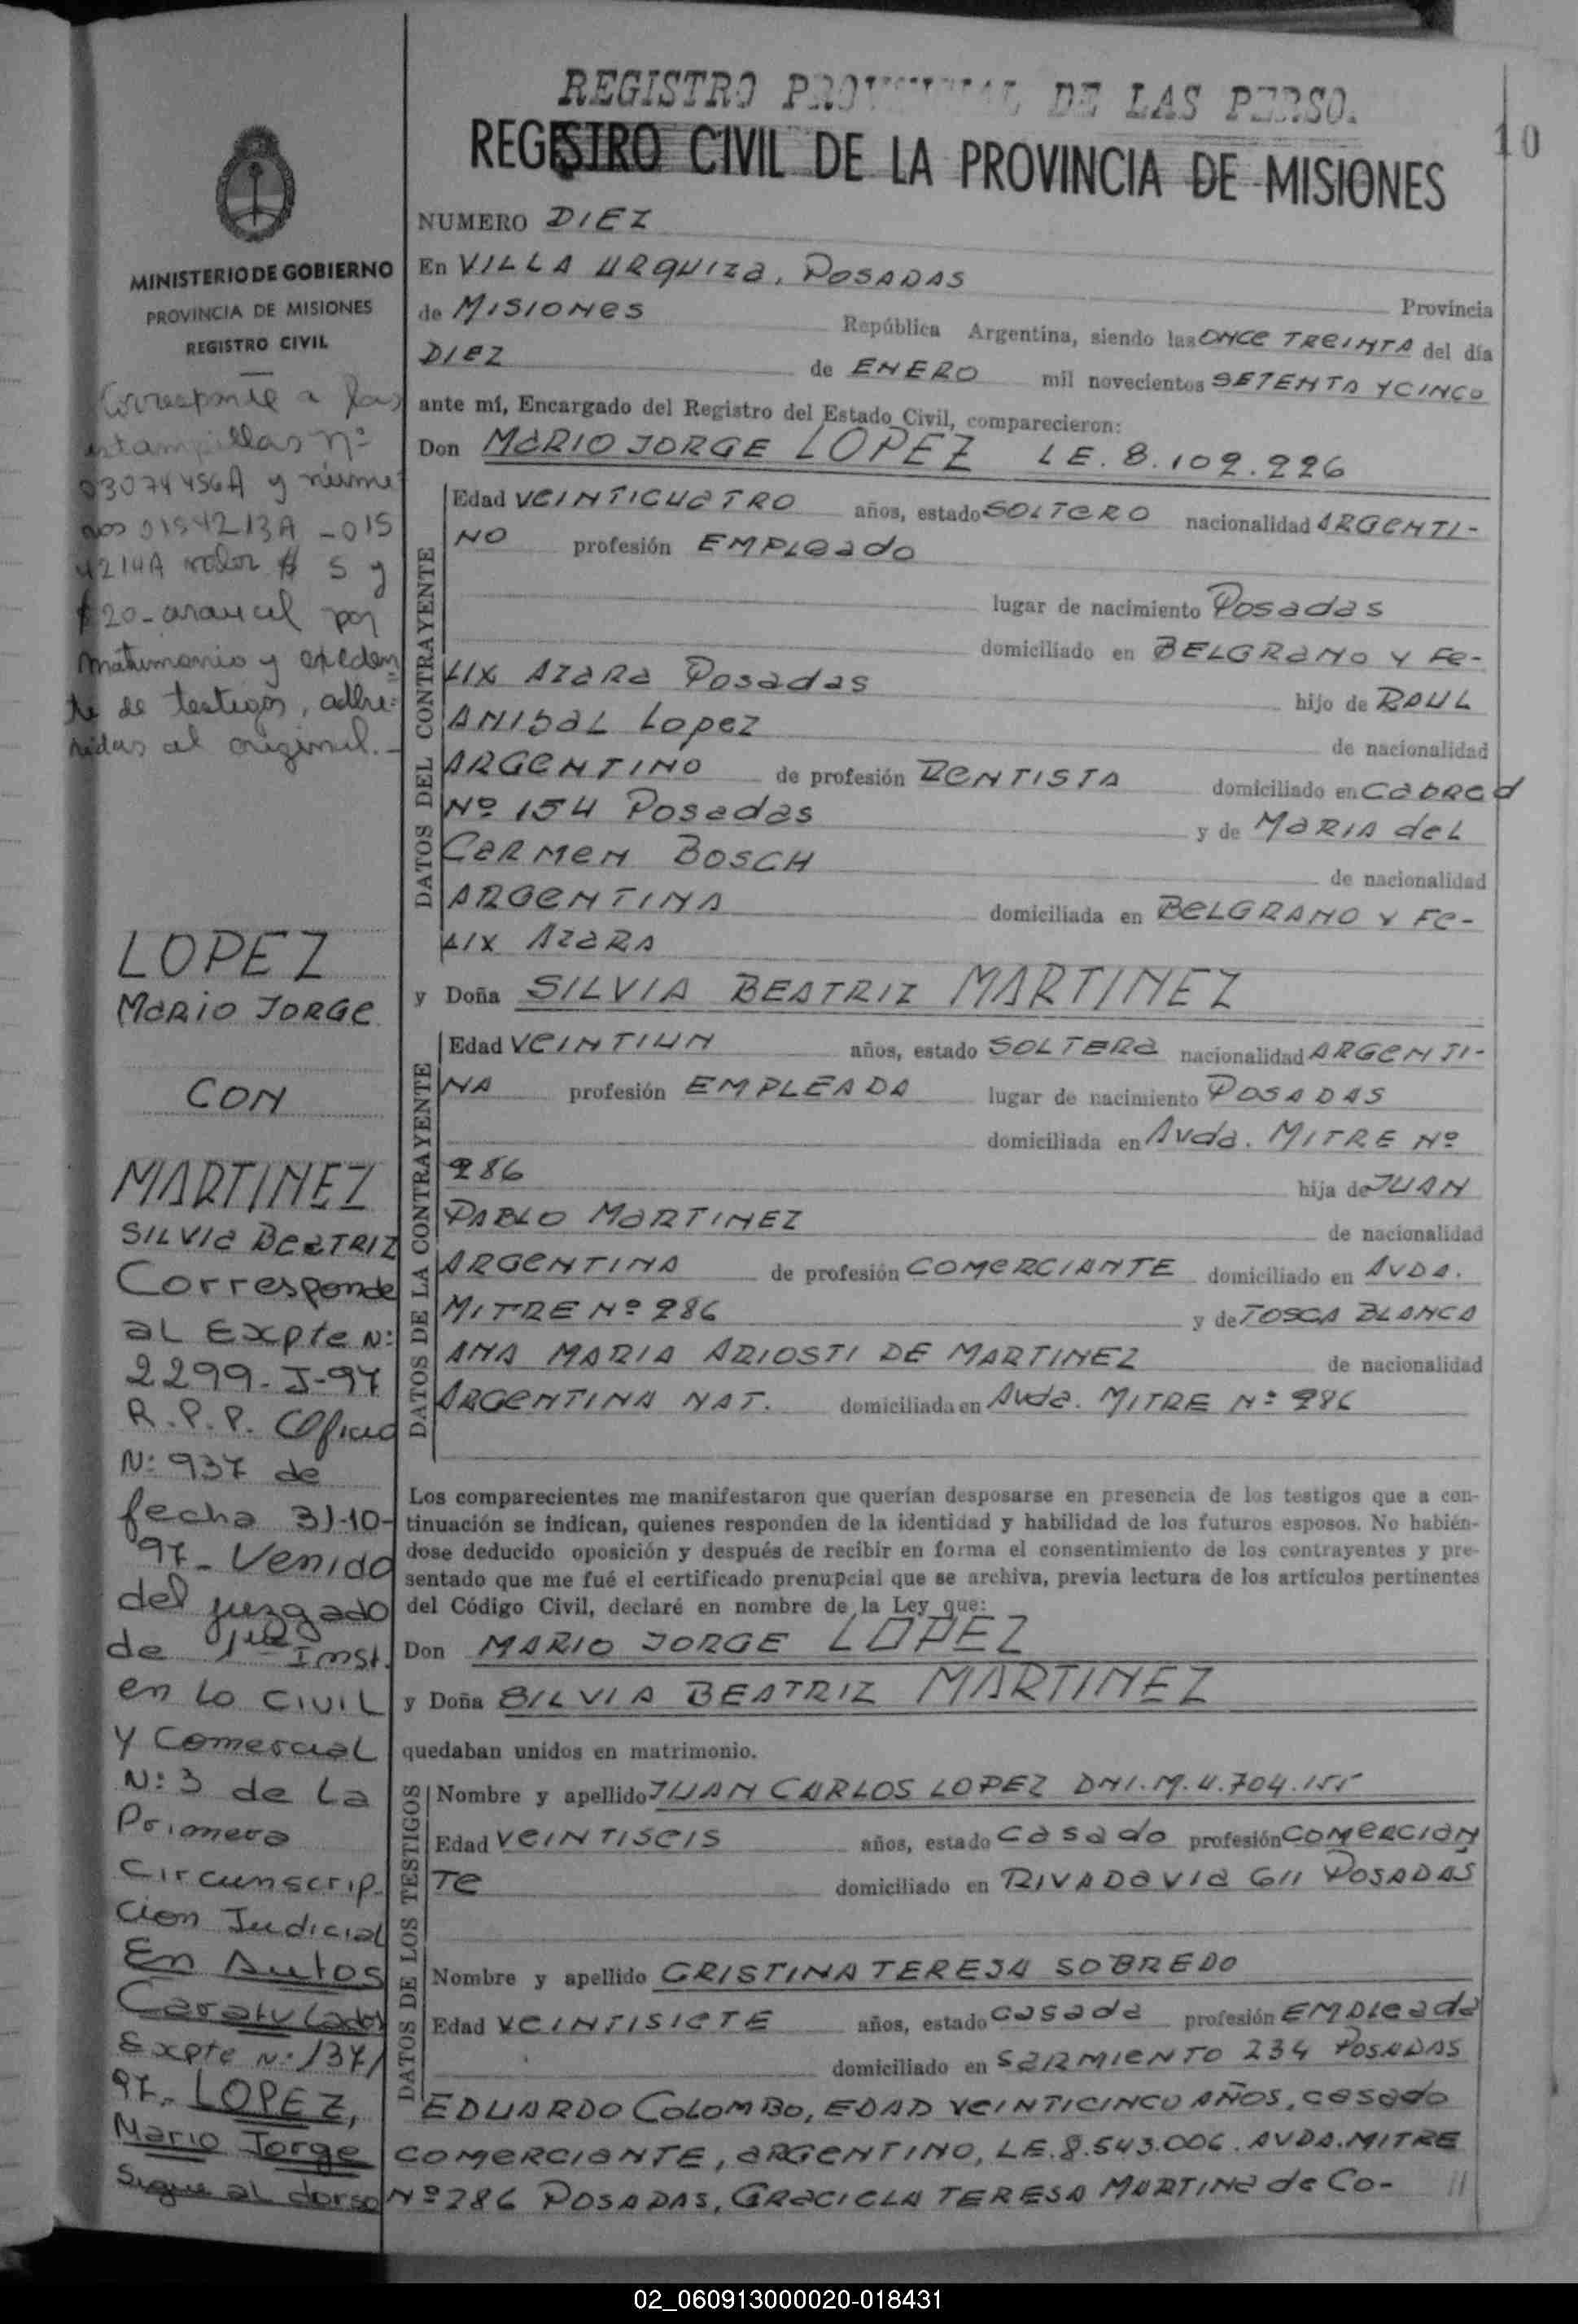 REGISTRO PROVINCIAL DE LAS PERSO.
REGISTRO CIVIL DE LA PROVINCIA DE MISIONES
10
MINISTERIO DE GOBIERNO
PROVINCIA DE MISIONES
REGISTRO CIVIL
Corresponde a las
estampillas nº
03074456A y núme
ros 0154213A - 015
4214A valor $ 5 y
$20 - arancel por
matrimonio y exceden
te de testigos, adhe-
ridas al original. -
LOPEZ
MARIO JORGE
CON
MARTINEZ
SILVIA BEATRIZ
Corresponde
al Expte Nº
2299-J-97
R.P.P. Oficio
Nº 937 de
fecha 31-10-
97- Venido
del juzgado
de 1ra Inst.
en lo Civil
y Comercial
Nº 3 de la
Primera
Circunscrip-
cion Judicial
En Autos
Caratulados
Expte Nº 137/
97- LOPEZ,
Mario Jorge
Sigue al dorso
NUMERO DIEZ
En VILLA URQUIZA, POSADAS
Provincia
de MISIONES República Argentina, siendo las ONCE TREINTA del día
DIEZ de ENERO mil novecientos SETENTA Y CINCO
ante mí, Encargado del Registro del Estado Civil, comparecieron:
Don MARIO JORGE LOPEZ LE. 8.109.226
DATOS DEL CONTRAYENTE
Edad VEINTICUATRO años, estado SOLTERO nacionalidad ARGENTI-
NO profesión EMPLEADO
lugar de nacimiento POSADAS
domiciliado en BELGRANO Y FE-
LIX AZARA POSADAS hijo de RAUL
ANIBAL LOPEZ de nacionalidad
ARGENTINO de profesión DENTISTA domiciliado en CABRED
Nº 154 POSADAS y de MARIA DEL
CARMEN BOSCH de nacionalidad
ARGENTINA domiciliada en BELGRANO Y FE-
LIX AZARA
y Doña SILVIA BEATRIZ MARTINEZ
DATOS DE LA CONTRAYENTE
Edad VEINTIUN años, estado SOLTERA nacionalidad ARGENTI-
NA profesión EMPLEADA lugar de nacimiento POSADAS
domiciliada en AVDA. MITRE Nº
286 hija de JUAN
PABLO MARTINEZ de nacionalidad
ARGENTINA de profesión COMERCIANTE domiciliado en AVDA.
MITRE Nº 286 y de TOSCA BLANCA
ANA MARIA ARIOSTI DE MARTINEZ de nacionalidad
ARGENTINA NAT. domiciliada en AVDA. MITRE Nº 286
Los comparecientes me manifestaron que querían desposarse en presencia de los testigos que a con-
tinuación se indican, quienes responden de la identidad y habilidad de los futuros esposos. No habién-
dose deducido oposición y después de recibir en forma el consentimiento de los contrayentes y pre-
sentado que me fué el certificado prenupcial que se archiva, previa lectura de los artículos pertinentes
del Código Civil, declaré en nombre de la Ley que:
Don MARIO JORGE LOPEZ
y Doña SILVIA BEATRIZ MARTINEZ
quedaban unidos en matrimonio.
DATOS DE LOS TESTIGOS
Nombre y apellido JUAN CARLOS LOPEZ DNI.M.4.704.155
Edad VEINTISEIS años, estado CASADO profesión COMERCIAN
TE domiciliado en RIVADAVIA 611 POSADAS
Nombre y apellido CRISTINA TERESA SOBREDO
Edad VEINTISIETE años, estado CASADA profesión EMPLEADA
domiciliado en SARMIENTO 234 POSADAS
EDUARDO COLOMBO, EDAD VEINTICINCO AÑOS, CASADO
COMERCIANTE, ARGENTINO, LE.8.543.006. AVDA. MITRE
Nº 286 POSADAS, GRACIELA TERESA MARTINE DE CO- //
02_060913000020-018431